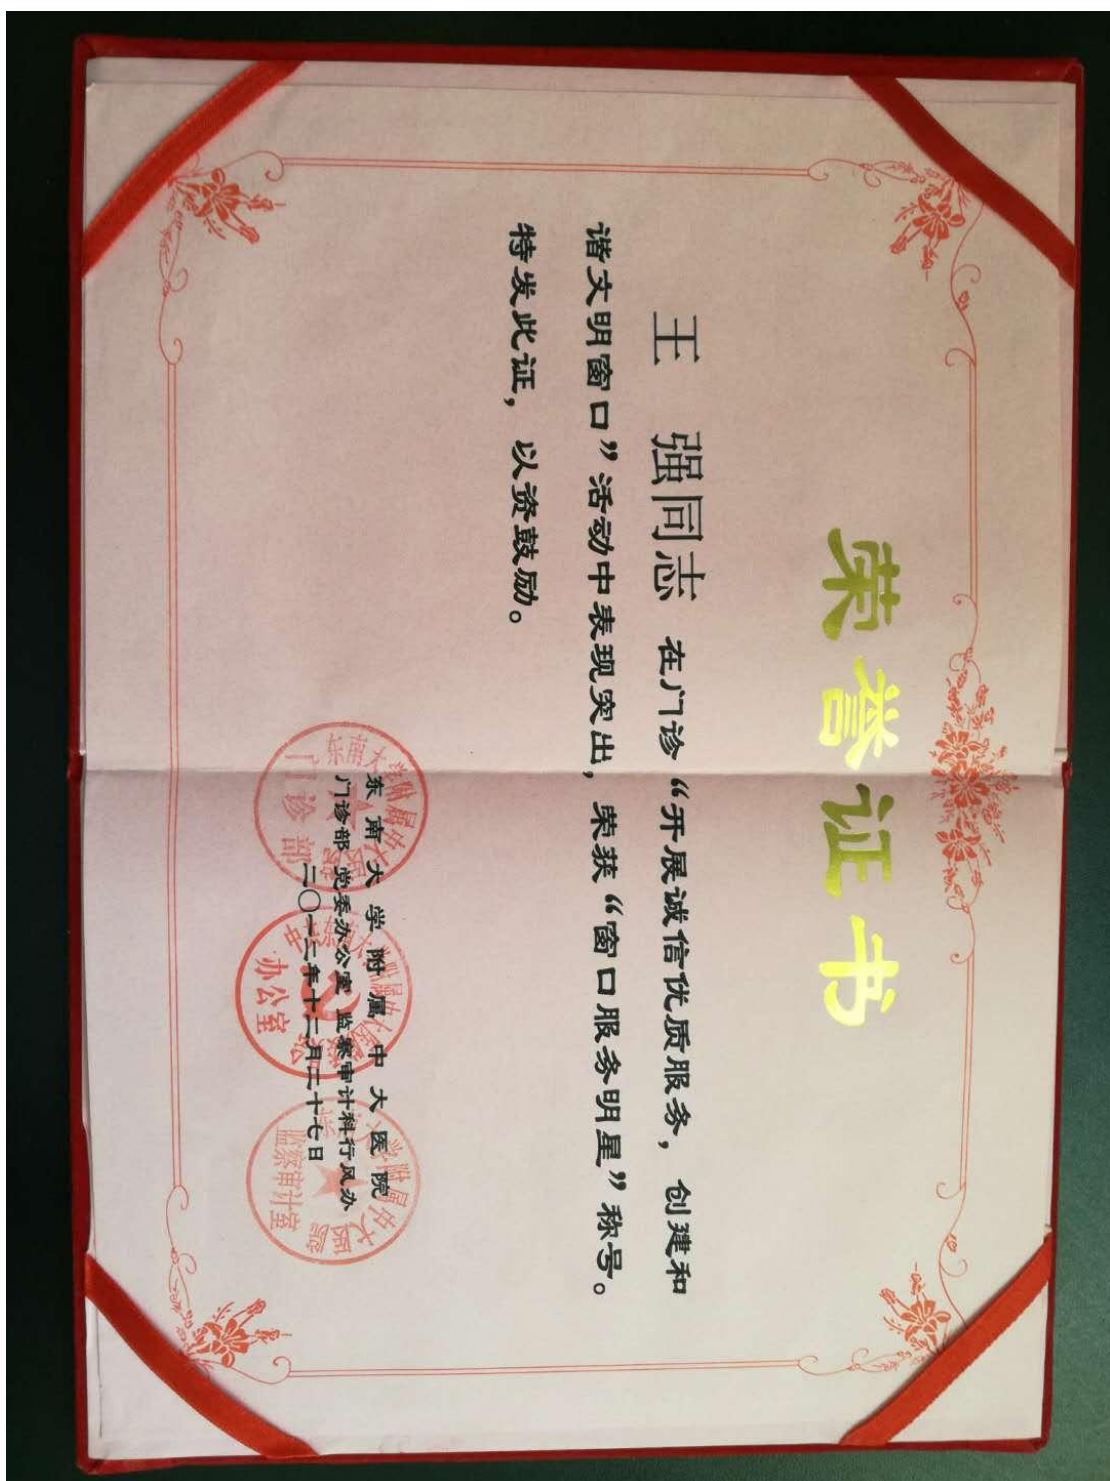 荣誉证书
王 强同志 在门诊“开展诚信优质服务，创建和
谐文明窗口”活动中表现突出，荣获“窗口服务明星”称号。
特发此证，以资鼓励。
东南大学附属中大医院
门诊部 党委办公室 监察审计科行风办
二〇一二年十二月二十七日
门诊部
办公室
监察审计室